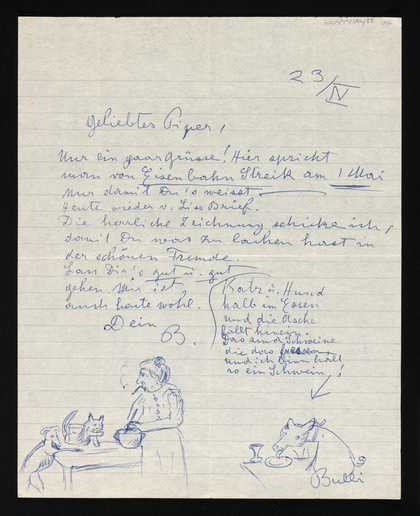 23/IV
Geliebtes Piper,
Nur ein paar Grüsse! Hier spricht
man von Eisenbahn Streik am 1 Mai
Nur damit Du's weisst
Heute wieder v. Lise Brief.
Die herrliche Zeichnung schicke ich,
damit Du was zu lachen hast in
der schönen Fremde.
Lass Dir's gut u. gut
gehen. Mir ist
auch heute wohl.
Dein
B.
Katz u. Hund
halb im Essen
und die Asche
fällt hinein.
Das sind Schweine
die
und ich bin halt
so ein Schwein!
Bulli